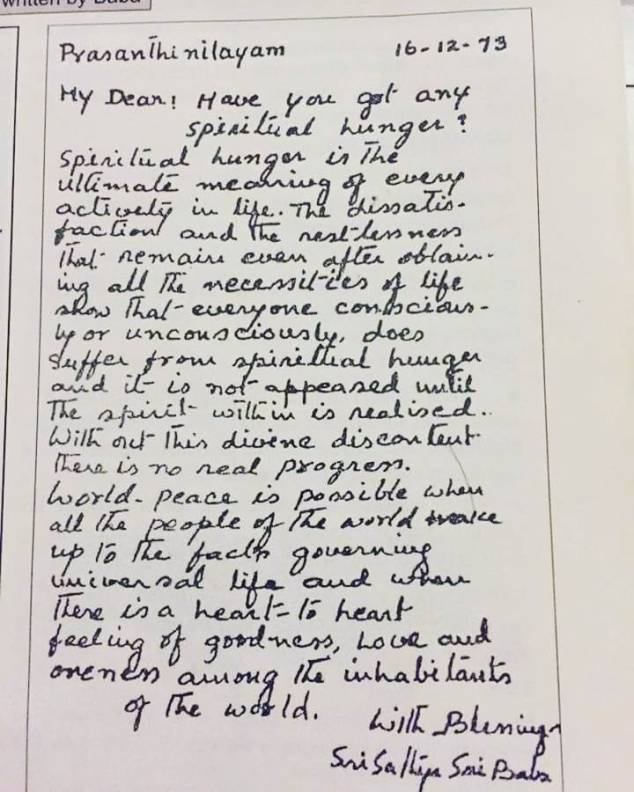 written by Baba
Prasanthinilayam 16-12-73
My Dear! Have you got any
spiritual hunger?
Spiritual hunger is the
ultimate meaning of every
actively in life. The dissatis-
faction and the restlessness
that remain even after obtain-
ing all the necessities of life
show that everyone conscious-
ly or unconsciously, does
suffer from spiritual hunger
and it is not appeased until
The spirit within is realised.
With out this divine discontent
there is no real progress.
World-peace is possible when
all the people of the world wake
up to the facts governing
universal life and when
there is a heart-to heart
feeling of goodness, Love and
oneness among the inhabitants
of the world.
With Blessings
Sri Sathya Sai Baba